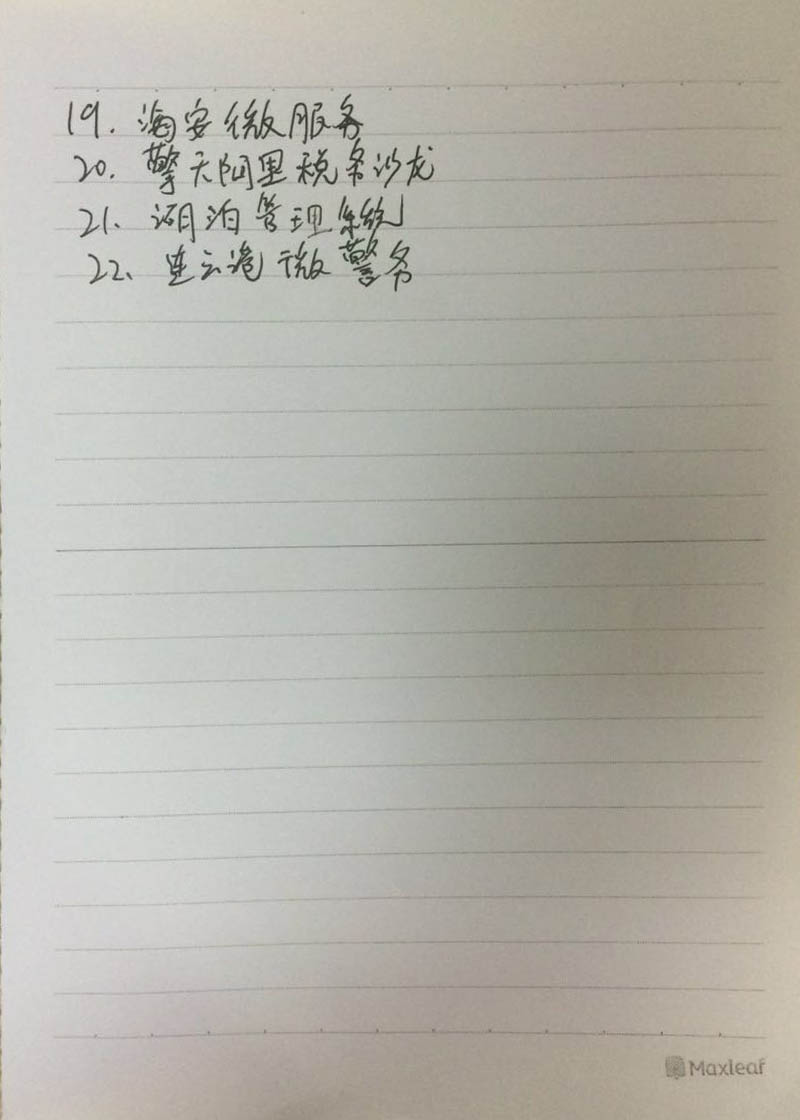 19. 海安微服务
20. 擎天阿里税务沙龙
21. 湖泊管理系统
22、连云港微警务
Maxleaf